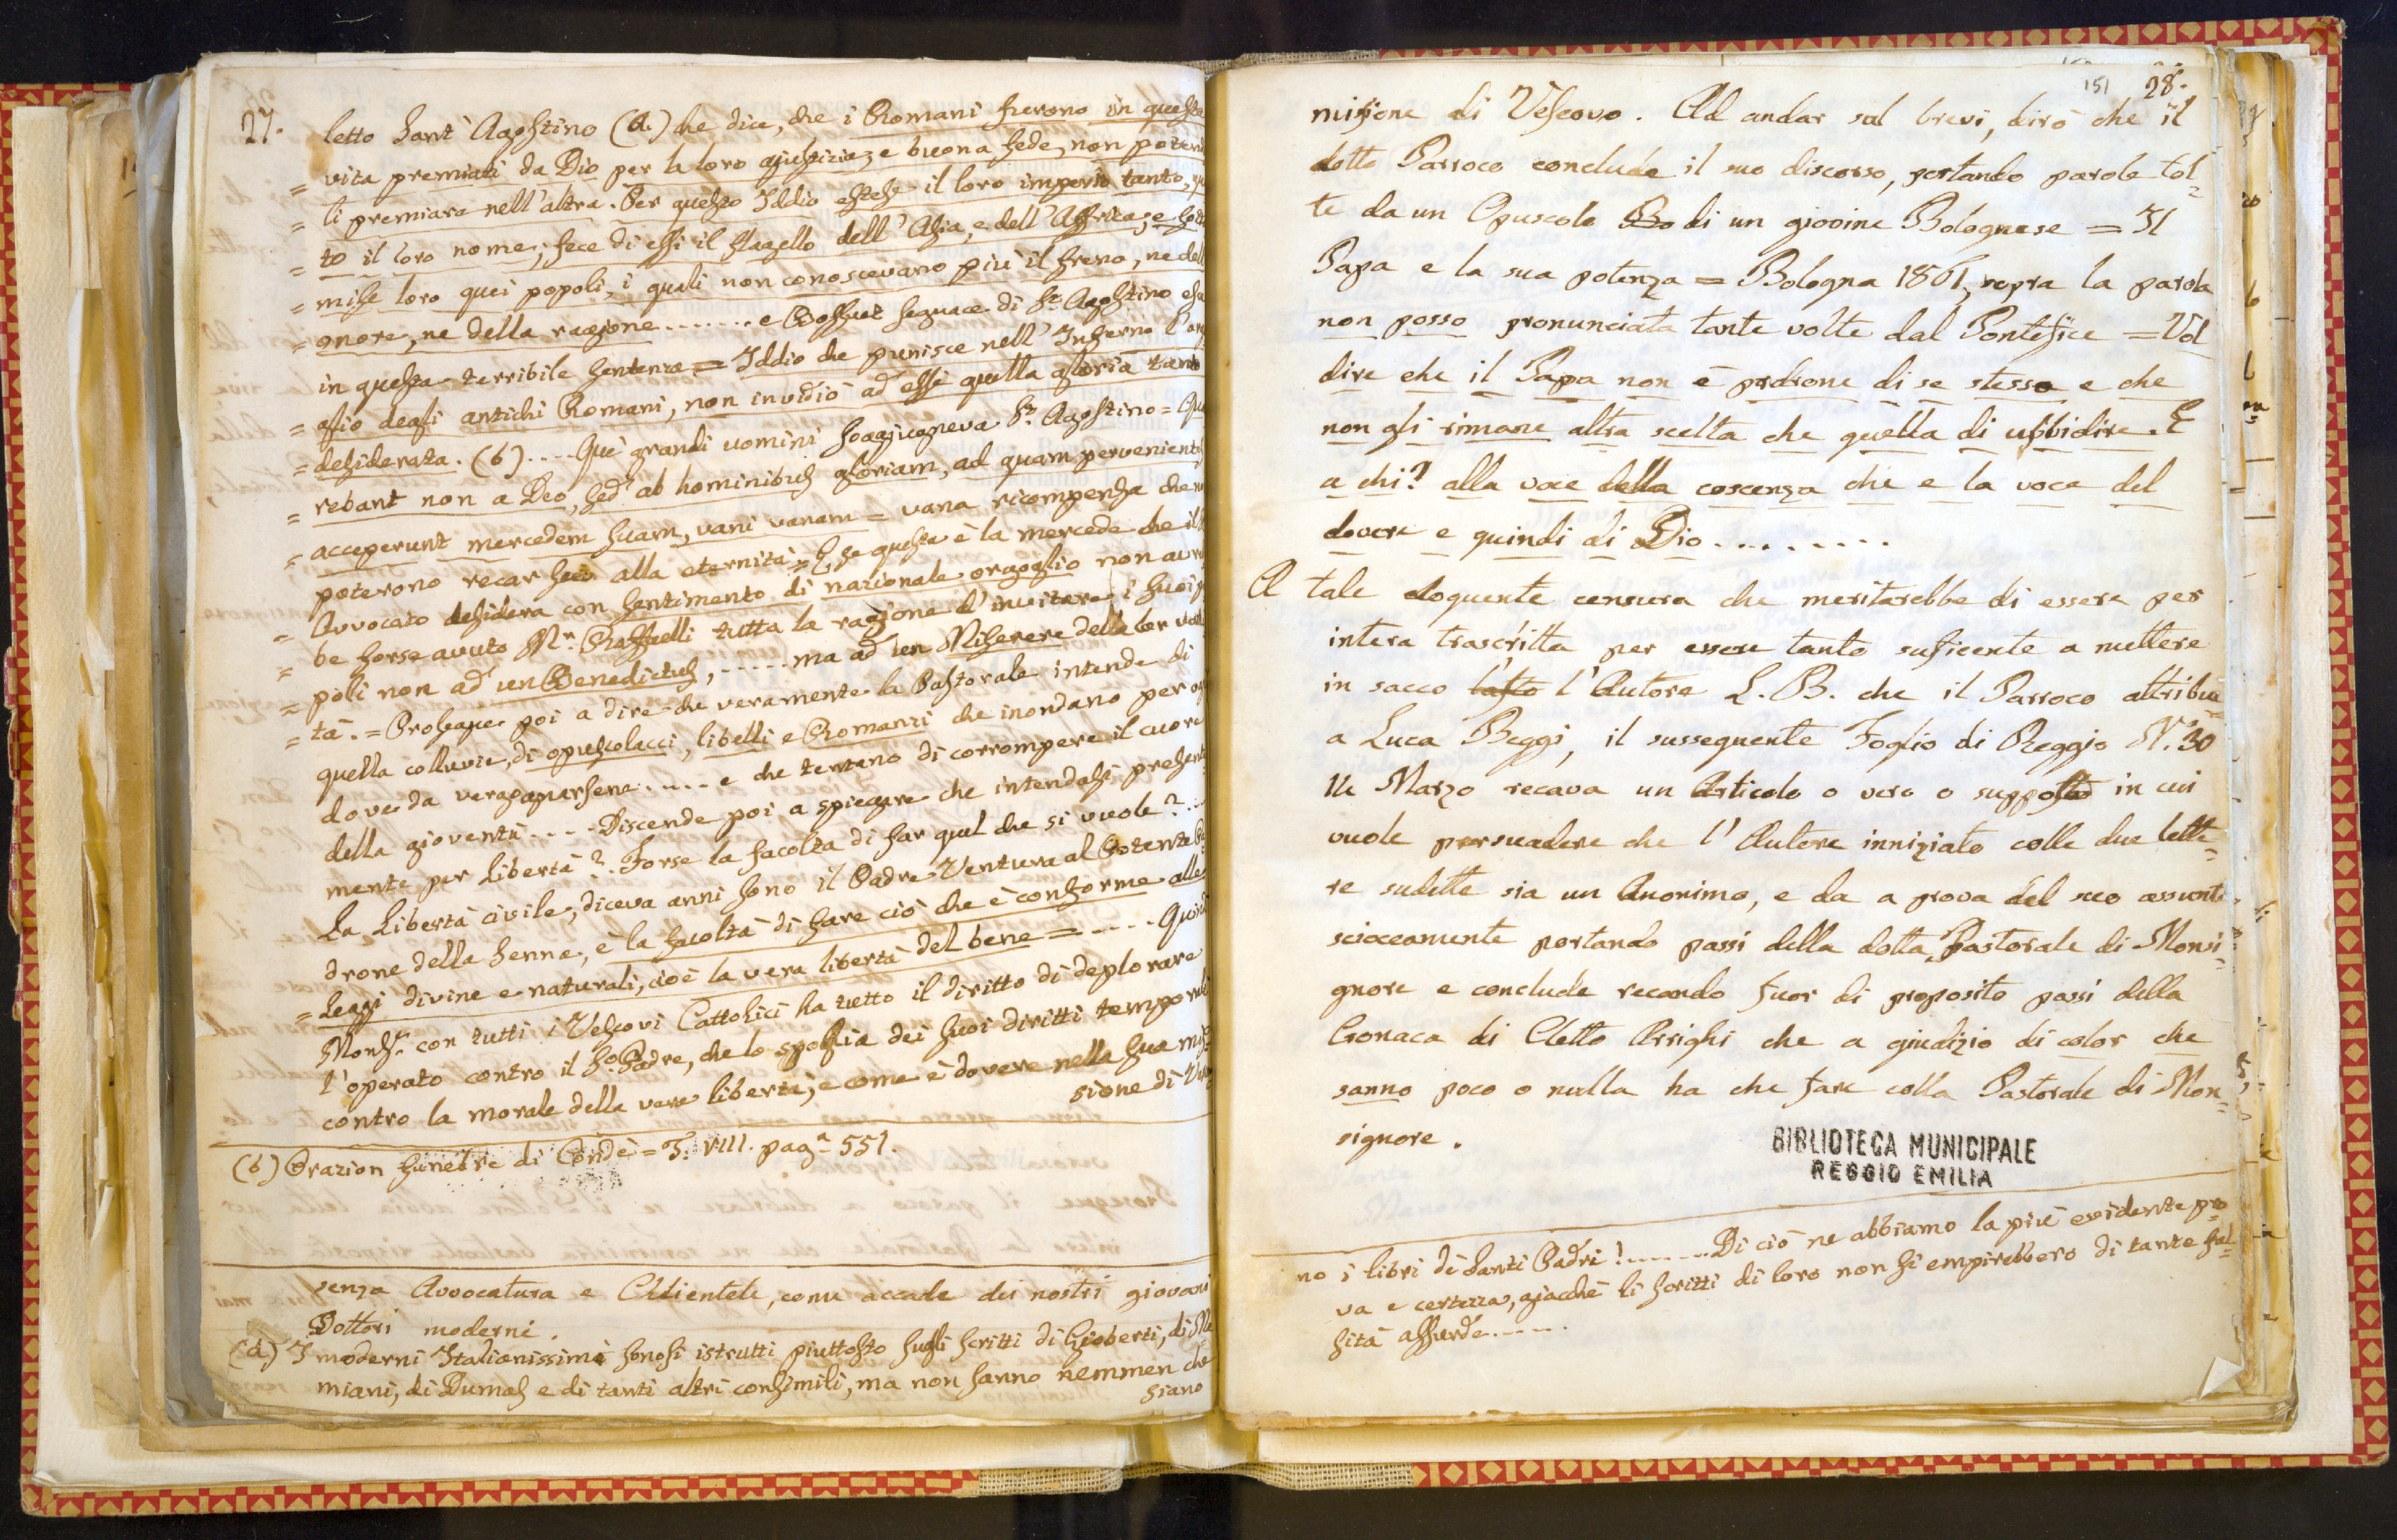 27.
letto Sant' Agostino (a.) che dice, che i Romani furono in questa
= vita premiati da Dio per la loro giustizia, e buona fede, non poten
= li premiare nell' altra. Per questo Iddio estese il loro imperio tanto,
= to il loro nome; fece di essi il flagello dell' Asia, e dell' Affrica; e
= mise loro quei popoli, i quali non conoscevano più il freno, ne
= gnore, ne della ragione ....... e Bossuet seguace di St. Agostino
in questa terribile sentenza = Iddio che punisce nell' Inferno l'
= glio degli antichi Romani, non invidiò ad essi quella gloria tanto
= desiderata. (b) .... Quì grandi uomini soggiugneva St. Agostino =
= rebant non a Deo, sed ab hominibus gloriam, ad quam pervenient
= acceperunt mercedem suam, vani vanam = vana ricompensa che
poterono recar seco alla eternità = E se questa è la mercede che il
= Avvocato desidera con sentimento di nazionale orgoglio non
= be forse avuto Mr. Raffaelli tutta la ragione d' invitare i suoi
= poli non ad un Benedictus, ..... ma ad un Miserere della lor
= tà. = Prosegue poi a dire che veramente la Pastorale intende di
quella colluvie, di opuscolacci, libelli e Romanzi che inondano per
dove da vergognarsene ..... e che tentano di corrompere il cuore
della gioventù .... Discende poi a spiegare che intendasi
mente per Libertà? Forse la facoltà di far quel che si vuole? ..
La Libertà civile, diceva anni sono il Padre Ventura al Potente
drone della Senna, è la facoltà di fare ciò che è conforme alle
= Leggi divine e naturali, cioè la vera libertà del bene = ....
Monsr. con tutti i Vescovi Cattolici ha tutto il diritto di deplorare
l' operato contro il So. Padre, che lo spoglia dei suoi diritti
contro la morale della vera libertà, e come è dovere nella sua
sione di
(b) Orazion funebre di Condè = T. VIII. paga. 551.
senza Avvocatura e Clientele, come accade dei nostri giovani
Dottori moderni.
(a) I moderni Italianissimi sonosi istrutti piuttosto sugli scritti di Gioberti, di
miani, di Dumas e di tanti altri consimili, ma non sanno nemmen che
siano
151 28.
missione di Vescovo. Ad andar sul brevi, dirò che il
dotto Parroco conclude il suo discorso, portando parole tol-
te da un Opuscolo Bo di un giovine Bolognese = Il
Papa e la sua potenza = Bologna 1861, sopra la parola
non posso pronunciata tante volte dal Pontefice = Vol
dire che il Papa non è padrone di se stesso e che
non gli rimane altra scelta che quella di ubbidire. E
a chi? alla voce della coscenza che e la voce del
dovere e quindi di Dio .........
A tale eloquente censura che meritarebbe di essere per
intera trascritta per essere tanto suficente a mettere
in sacco l'Autore L. B. che il Parroco attribui
a Luca Beggi, il sussequente Foglio di Reggio N. 30
Marzo recava un Articolo o vero o supposto in cui
vuole persuadere che l' Autore inniziato colle due lette=
re sudette sia un Anonimo, e da a prova del suo assunto
scioccamente portando passi della dotta Pastorale di Monsi=
gnore e conclude recando fuor di proposito passi della
Cronaca di Cletto Arrighi che a giudizio di color che
sanno poco o nulla ha che fare colla Pastorale di Mon=
signore.
BIBLIOTECA MUNICIPALE
REGGIO EMILIA
no i libri di Santi Padri! ....... Di ciò ne abbiamo la più evidente pro
va e certezza, giacchè li scritti di loro non si empirebbero di tante fal=
sità assurde .....